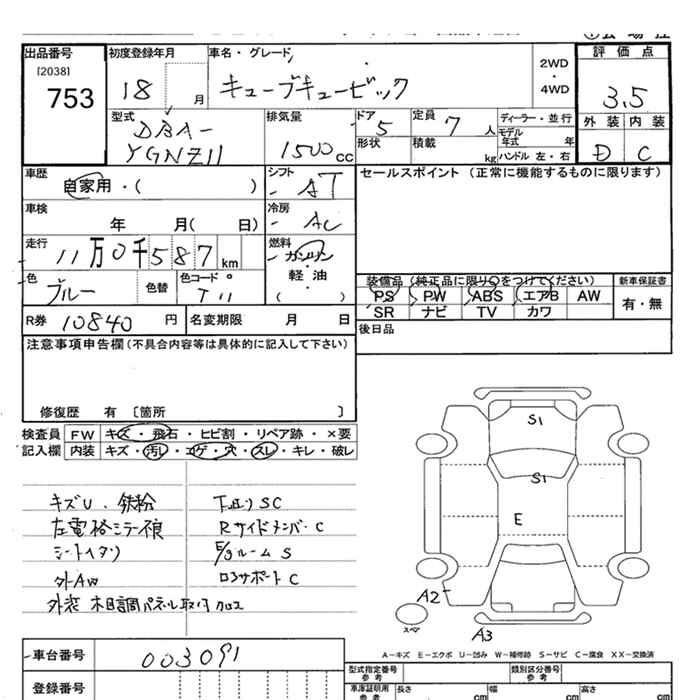 出品番号
[2038]
753
初度登録年月
18 月
車名・グレード
キューブキュービック
2WD
・
4WD
評価点
3.5
外装 内装
D C
型式
DBA-
YGNZ11
排気量
1500 cc
ドア
5
形状
定員
7 人
積載
kg
ディーラー・並行
モデル
年式 年
ハンドル 左・右
車歴
自家用・( )
シフト
AT
セールスポイント (正常に機能するものに限ります)
車検
年 月( 日)
冷房
AC
走行
11万0千587km
燃料
ガソリン
軽・油
・
( )
色
ブルー
色替
色コード
T11
装備品 (純正品に限り○をつけてください)
PS PW ABS エアB AW
SR ナビ TV カワ
新車保証書
有・無
R券 10840 円
名変期限 月 日
後日品
注意事項申告欄(不具合内容等は具体的に記入して下さい)
修復歴 有 〔箇所 〕
検査員 FW キズ・飛石・ヒビ割・リペア跡・×要
記入欄 内装 キズ・汚レ・コゲ・穴・スレ・キレ・破レ
キズU・鉄粉
左電格ミラー不良
シートヘタリ
外AW
外装 木目調パネル取付クロス
下廻りSC
RサイドメンバーC
E/gルームS
ロアサポートC
S1
S1
E
A2
A3
スペア
A-キズ E-エクボ U-凹み W-補修跡 S-サビ C-腐食 XX-交換済
車台番号 003091
登録番号
型式指定番号
参考
類別区分番号
参考
車庫証明用
参考
長さ cm
幅 cm
高さ cm